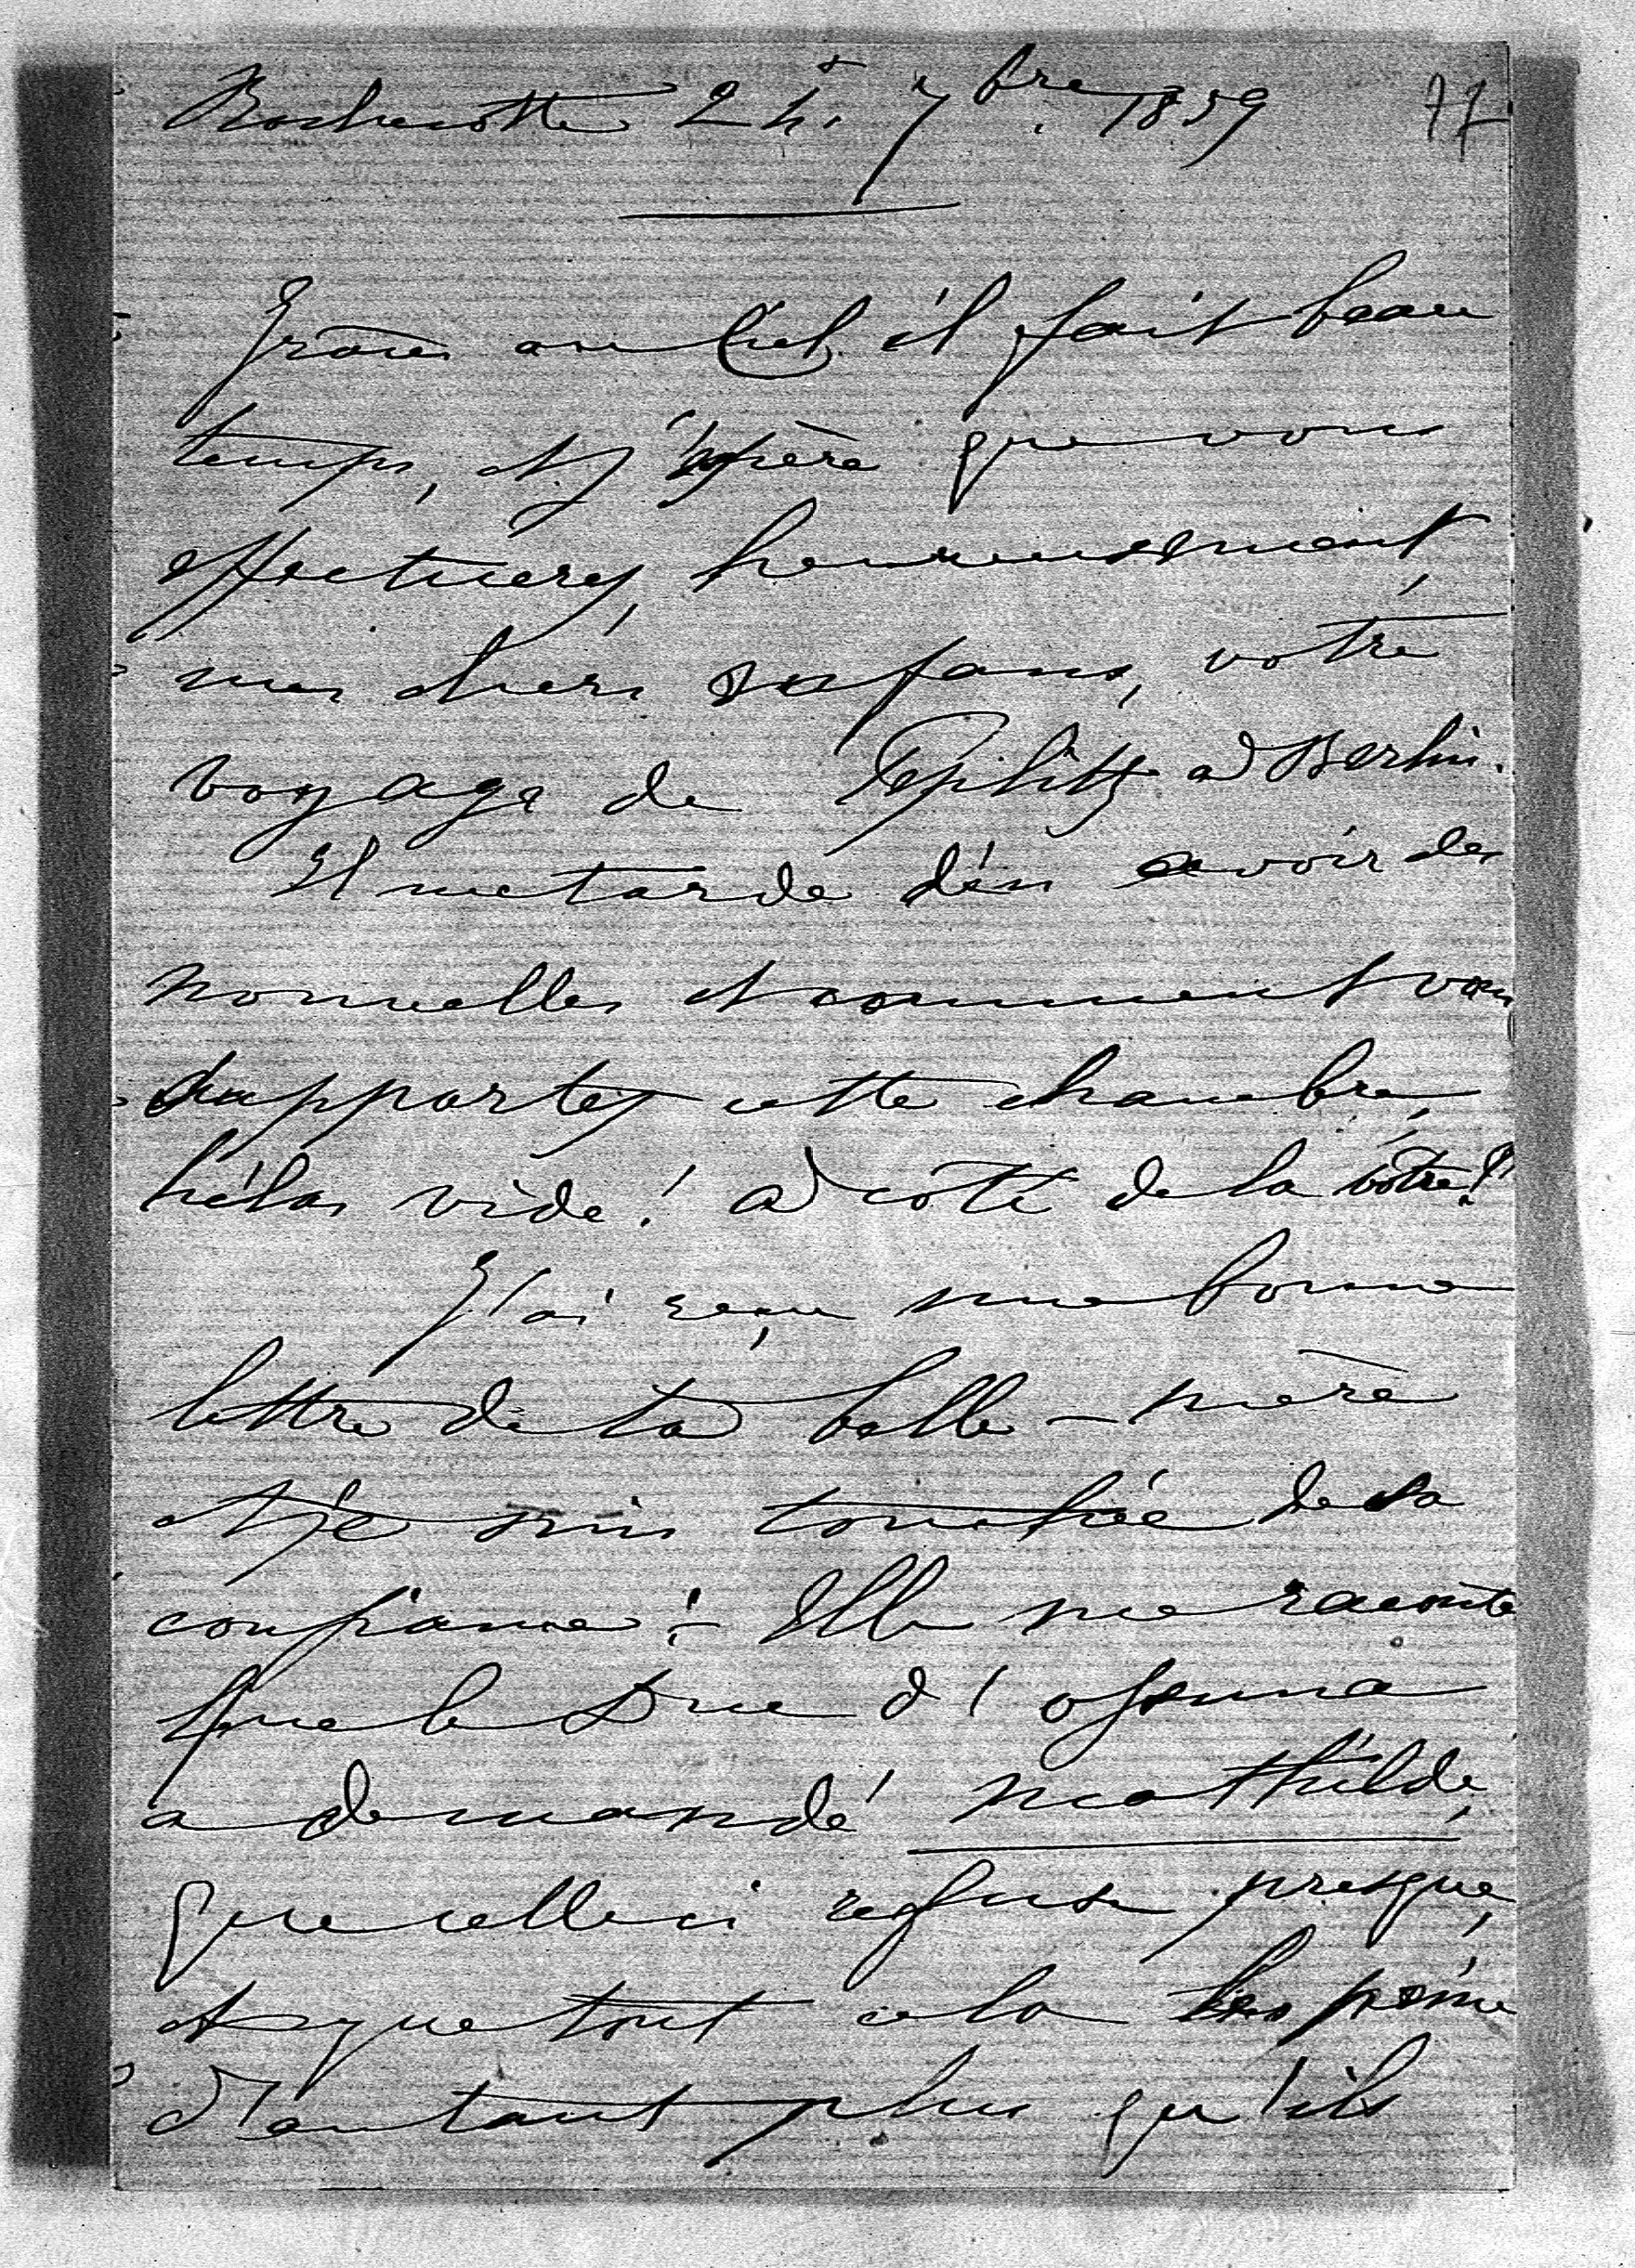 Rochecotte 24. 7bre. 1859 77
Grâces au Ciel, il fait beau
temps, et j'espère que vous
effectuerez, heureusement,
mes chers enfans, votre
voyage de Teplitz à Berlin.
Il me tarde d'en avoir des
nouvelles et comment vous
supportez cette chambre,
hélas vide! à côté de la vôtre!
J'ai reçu une bonne
lettre de ta belle-mère
et je suis touchée de sa
confiance:- Elle me raconte
que le Duc d'Ossuna
a demandé Mathilde,
que celle ci refuse presque,
et que tout cela les peine
d'autant plus qu'ils